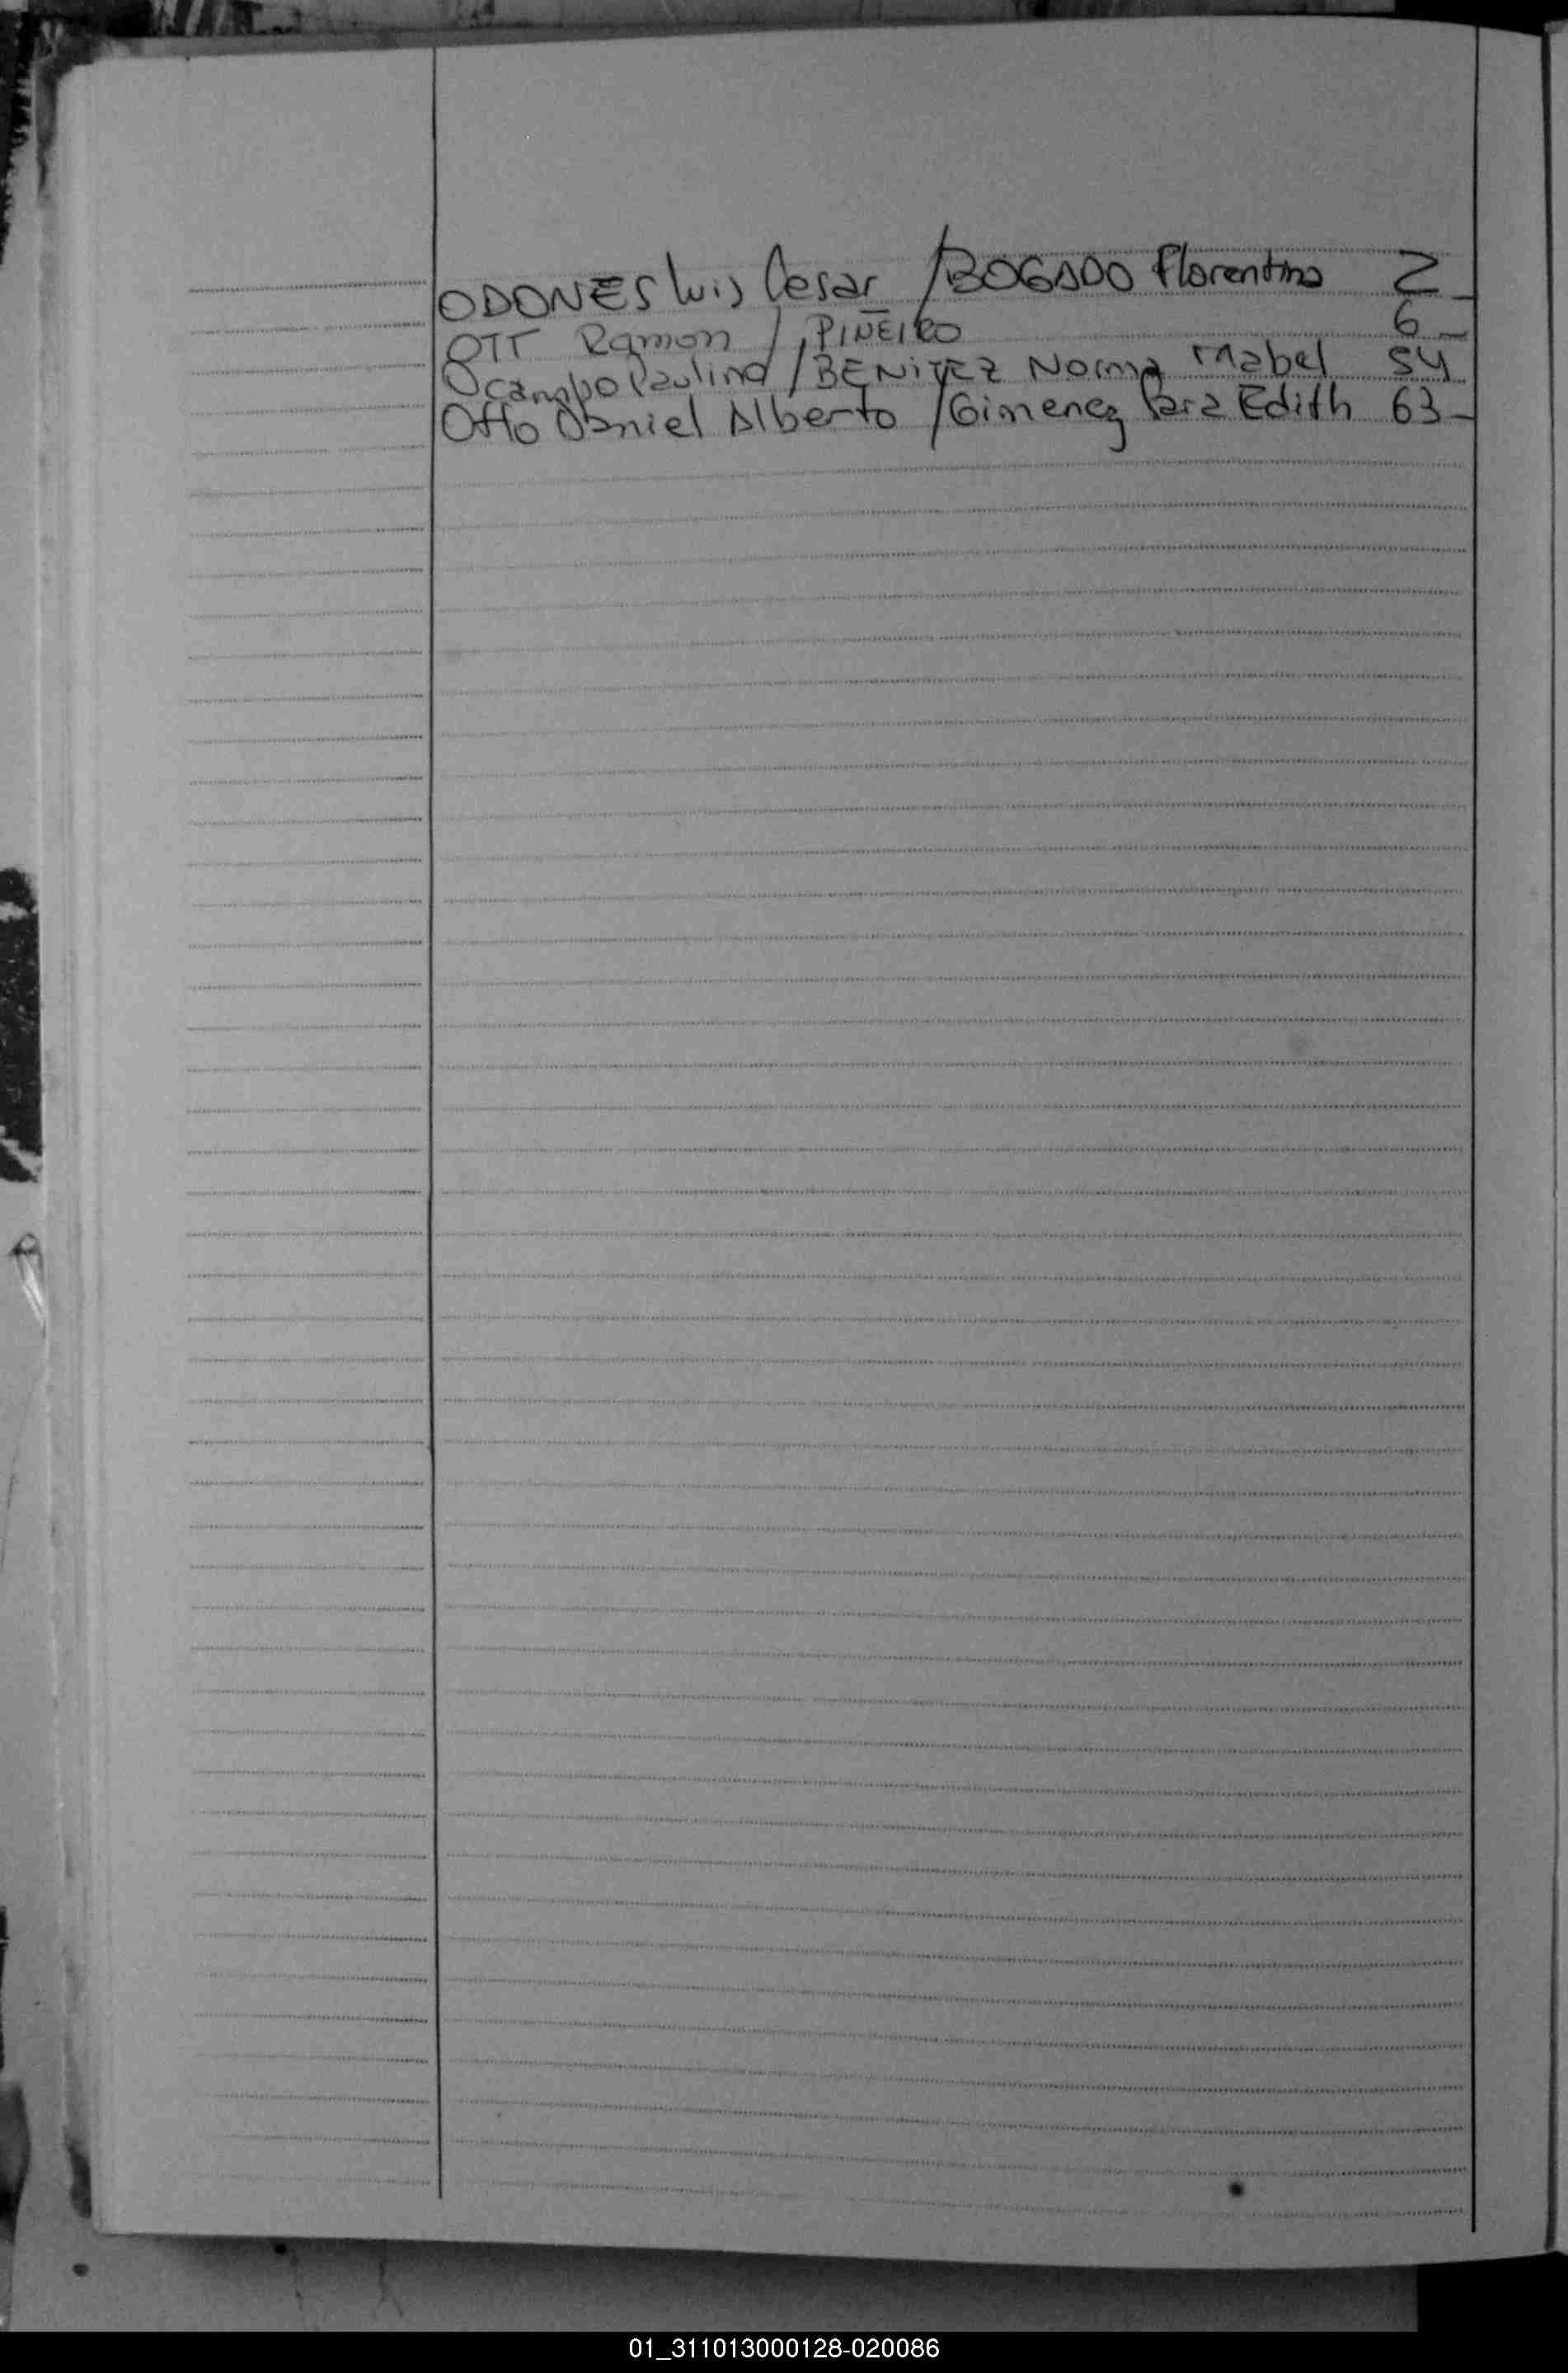 ODONES Luis Cesar / BOGADO Florentino 2_
OTT Ramon / PIÑEIRO 6_
Ocampo Paulino / BENITEZ Norma Mabel 54
Otto Daniel Alberto / Gimenez Edith 63_
01_311013000128-020086